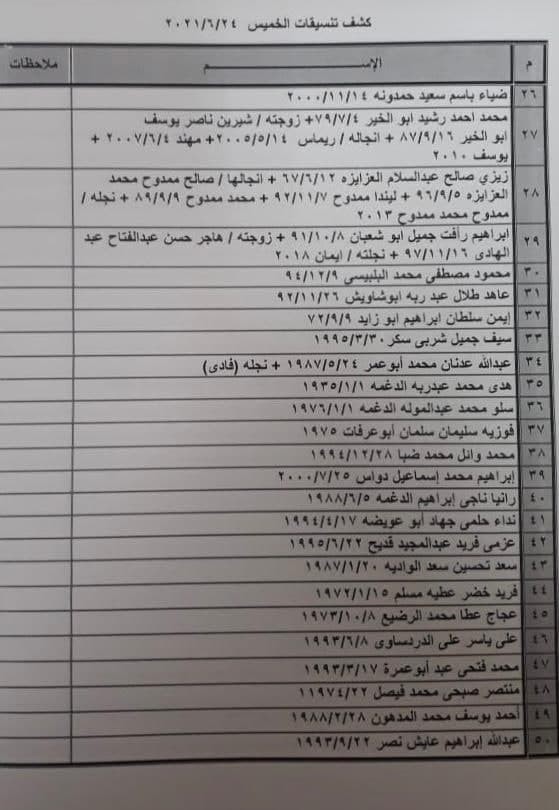 كشف تنسيقات الخميس ٢٠٢١/٦/٢٤
م الإســـــــم ملاحظات
٢٦ ضياء باسم سعيد حمدونه ٢٠٠٠/١١/١٤
محمد احمد رشيد ابو الخير ٧٩/٧/٤+ زوجته / شيرين ناصر يوسف
٢٧ ابو الخير ٨٧/٩/١٦ + انجاله / ريماس ٢٠٠٥/٥/١٤+ مهند ٢٠٠٧/٦/٤ +
يوسف ٢٠١٠
زيزي صالح عبدالسلام العزايزه ٦٧/٦/١٢ + انجالها / صالح ممدوح محمد
٢٨ العزايزه ٩٦/٩/٥ + ليندا ممدوح ٩٢/١١/٧ + محمد ممدوح ٨٩/٩/٩ + نجله /
ممدوح محمد ممدوح ٢٠١٣
٢٩ ابراهيم رأفت جميل ابو شعبان ٩١/١٠/٨ + زوجته / هاجر حسن عبدالفتاح عبد
الهادى ٩٧/١١/١٦ + نجلته / ايمان ٢٠١٨
٣٠ محمود مصطفى محمد البلبيسى ٩٤/١٢/٩
٣١ عاهد طلال عبد ربه ابوشاويش ٩٢/١١/٢٦
٣٢ إيمن سلطان ابراهيم ابو زايد ٧٢/٩/٩
٣٣ سيف جميل شربى سكر ١٩٩٥/٣/٣٠
٣٤ عبدالله عدنان محمد أبوعمر ١٩٨٧/٥/٢٤ + نجله (فادى)
٣٥ هدى محمد عبدربه الدغمه ١٩٣٥/١/١
٣٦ سلو محمد عبدالموله الدغمه ١٩٧٦/١/١
٣٧ فوزيه سليمان سلمان أبوعرفات ١٩٧٥
٣٨ محمد وائل محمد ضبا ١٩٩٤/١٢/٢٨
٣٩ إبراهيم محمد إسماعيل دواس ٢٠٠٠/٧/٢٥
٤٠ رانيا ناجى إبراهيم الدغمه ١٩٨٨/٦/٥
٤١ نداء حلمى جهاد أبو عويضه ١٩٩٤/٤/١٧
٤٢ عزمى فريد عبدالمجيد قديح ١٩٩٥/٦/٢٢
٤٣ سعد تحسين سعد الواديه ١٩٨٧/١/٢٠
٤٤ فريد خضر عطيه مسلم ١٩٧٢/١/١٥
٤٥ عجاج عطا محمد الرضيع ١٩٧٣/١٠/٨
٤٦ على ياسر على الدردساوى ١٩٩٣/٦/٨
٤٧ محمد فتحى عبد أبوعمرة ١٩٩٣/٣/١٧
٤٨ منتصر صبحى محمد فيصل ١١٩٧٤/٢٢
٤٩ أحمد يوسف محمد المدهون ١٩٨٨/٢/٢٨
٥٠ عبدالله إبراهيم عايش نصر ١٩٩٣/٩/٢٢